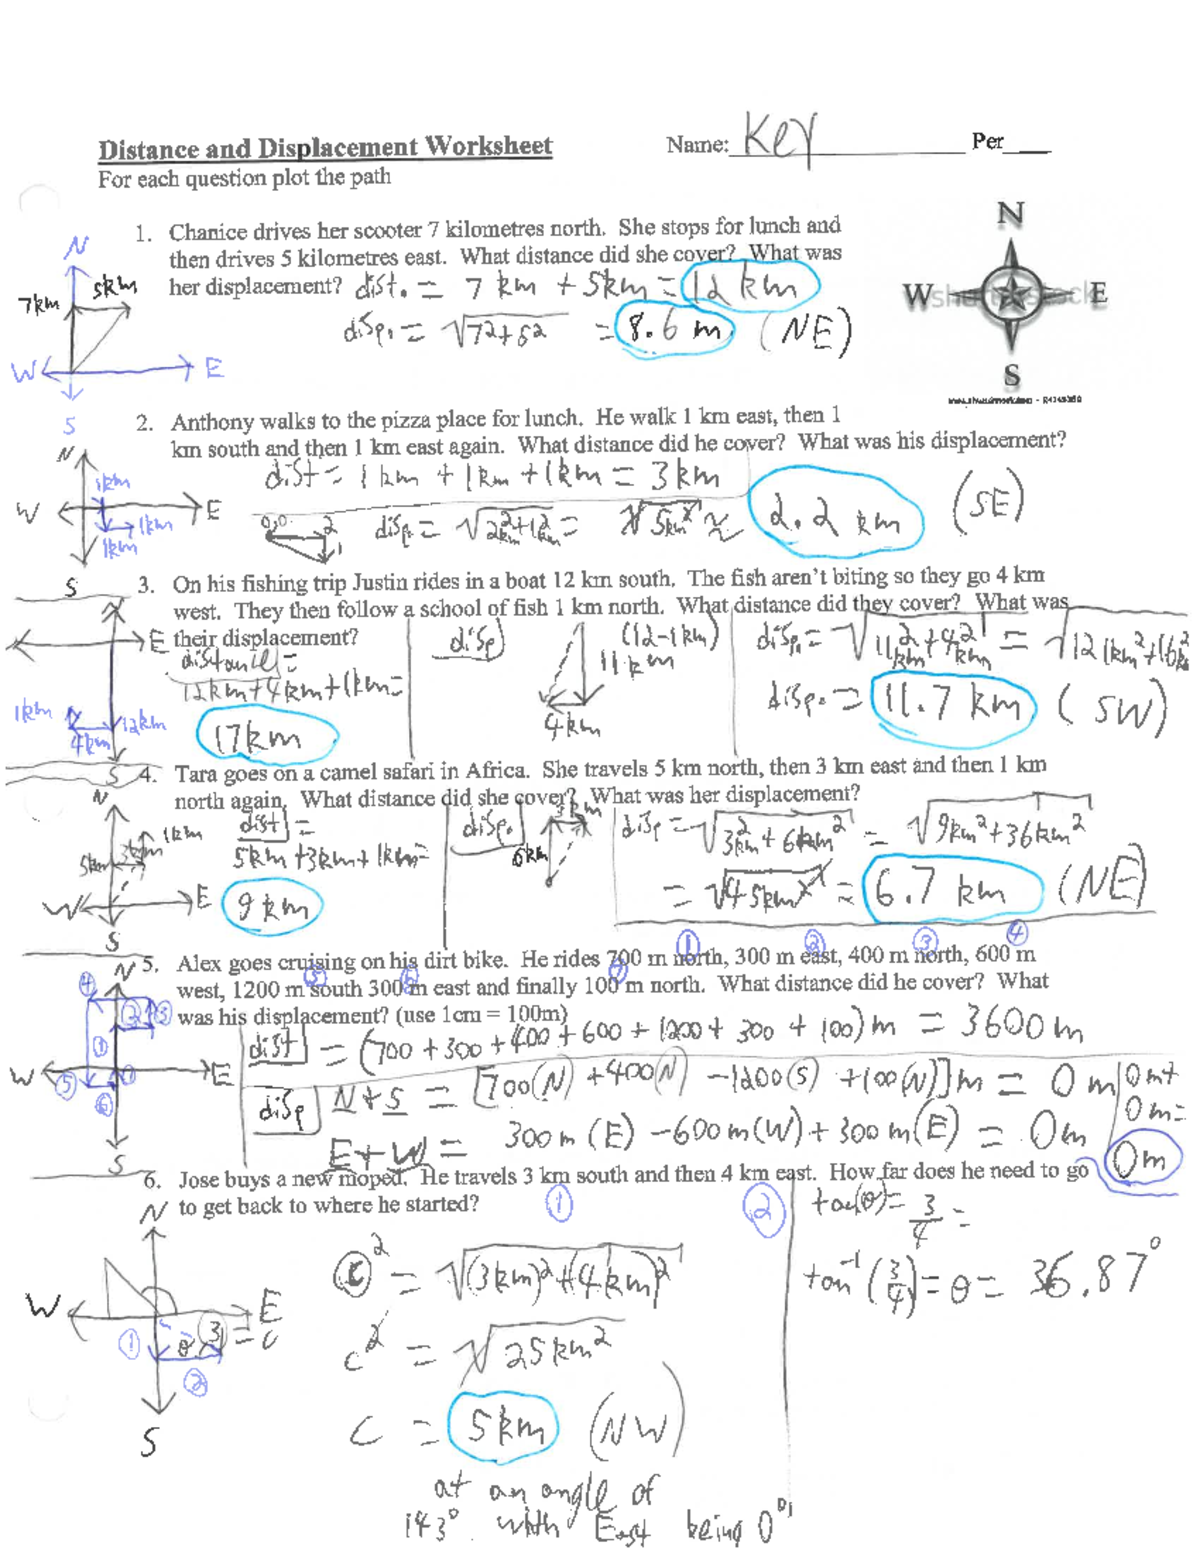 Distance and Displacement Worksheet
Name: Key Per
For each question plot the path
1. Chanice drives her scooter 7 kilometres north. She stops for lunch and
then drives 5 kilometres east. What distance did she cover? What was
her displacement? dist. = 7 km + 5km = 12 km
disp. = √7²+5² = 8.6 m (NE)
N
7km 5km
W E
S
N
W E
S
2. Anthony walks to the pizza place for lunch. He walk 1 km east, then 1
km south and then 1 km east again. What distance did he cover? What was his displacement?
dist = 1 km + 1km + 1km = 3 km
disp. = √2²km+1²km = √5km² ≈ 2.2 km (SE)
0,0 2
1
N
1km
W E
1km
1km
S
3. On his fishing trip Justin rides in a boat 12 km south. The fish aren't biting so they go 4 km
west. They then follow a school of fish 1 km north. What distance did they cover? What was
their displacement?
distance =
12km+4km+1km=
17km
disp
(12-1km)
11km
4km
disp. = √11²km+4²km = √121km²+16km
disp. = 11.7 km (SW)
N
E
1km
12km
4km
S
4. Tara goes on a camel safari in Africa. She travels 5 km north, then 3 km east and then 1 km
north again. What distance did she cover? What was her displacement?
dist =
5km+3km+1km=
9km
disp.
3km
6km
disp = √3²km+6km² = √9km²+36km²
= √45km² = 6.7 km (NE)
N
1km
5km 3km
W E
S
5. Alex goes cruising on his dirt bike. He rides 700 m north, 300 m east, 400 m north, 600 m
west, 1200 m south 300 m east and finally 100 m north. What distance did he cover? What
was his displacement? (use 1cm = 100m)
1 2 3 4
5 6 7
dist = (700 + 300 + 400 + 600 + 1200 + 300 + 100)m = 3600m
disp N+S = [700(N) +400(N) -1200(S) +100(N)]m = 0m
E+W = 300m(E) -600m(W)+300m(E) = 0m
0m+
0m=
0m
N
W E
S
6. Jose buys a new moped. He travels 3 km south and then 4 km east. How far does he need to go
to get back to where he started?
1 2
c² = √(3km)²+(4km)²
c² = √25km²
c = 5km (NW)
at an angle of
143° with East being 0°
tan(θ)= 3/4 =
tan⁻¹(3/4)=θ= 36.87°
N
W E
1
θ
2
S